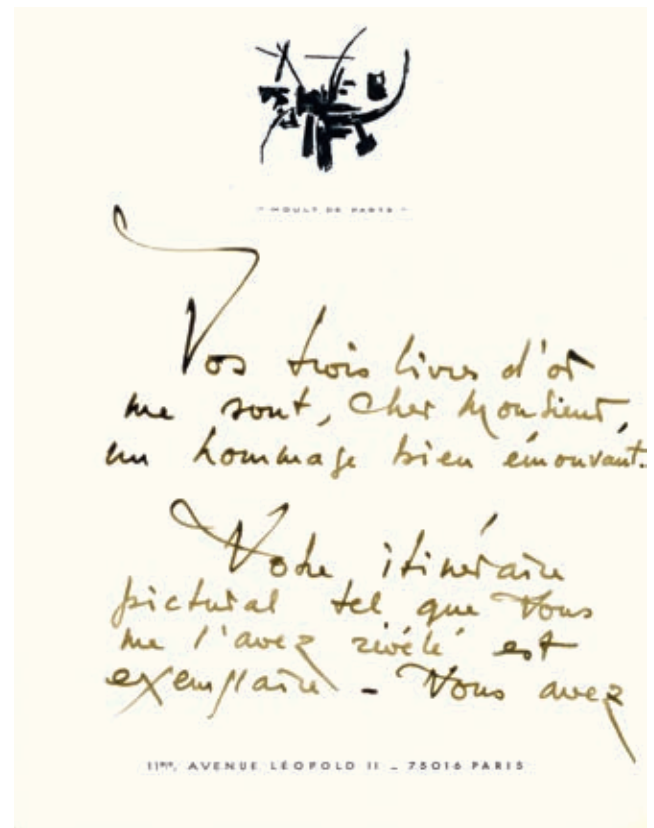 " MOULT DE PARTS "
Vos trois livres d'or
me sont, Cher Monsieur,
un hommage bien émouvant.
Votre itinéraire
pictural tel que Vous
me l'avez révélé est
exemplaire - Vous avez
11BIS, AVENUE LÉOPOLD II - 75016 PARIS